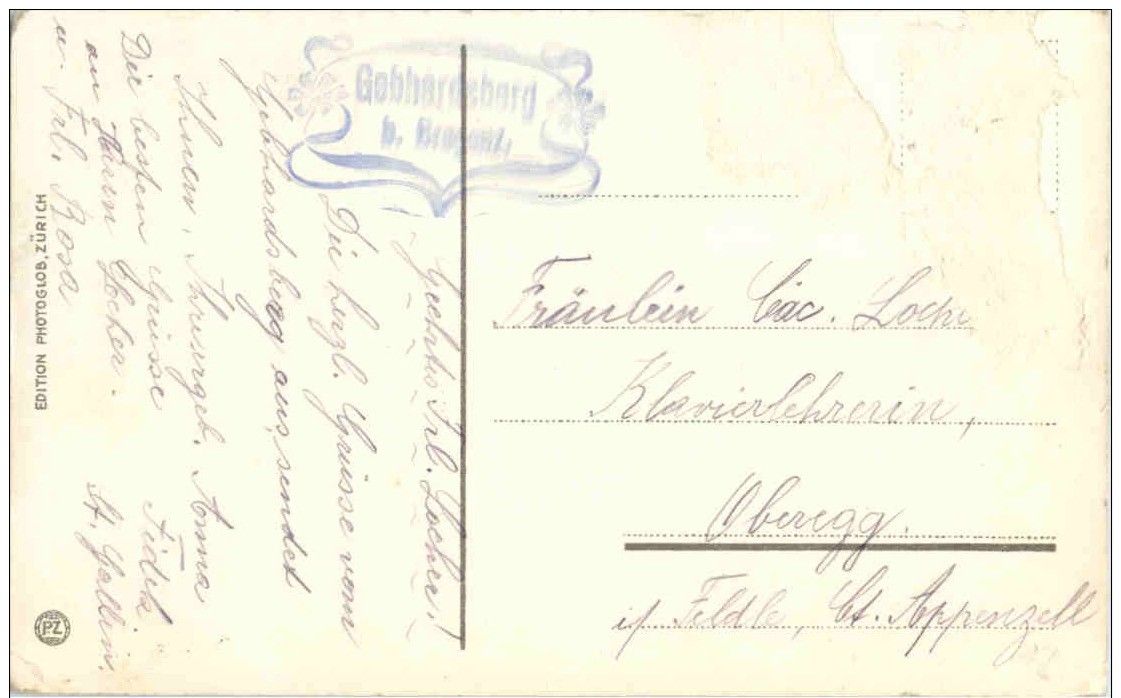 Gebhardsberg
b. Bregenz.
Geehrtes Frl. Locher!
Die herzl. Grüsse vom
Gebhardsberg aus sendet
Ihnen, Ihre Anna
Fidela
Die besten Grüsse
an Herrn Locher.
u. Frl. Rosa
St. Gallen.
Fräulein Cäc. Locher
Klavierlehrerin,
Oberegg.
i/ Feldle, Ct. Appenzell
EDITION PHOTOGLOB, ZÜRICH
PZ